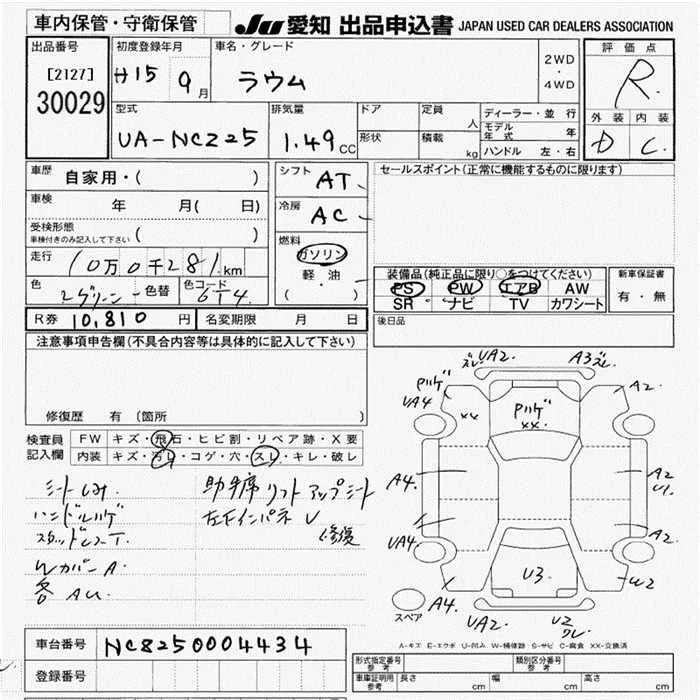 車内保管・守衛保管
JU 愛知 出品申込書 JAPAN USED CAR DEALERS ASSOCIATION
出品番号
[2127]
30029
初度登録年月
H15 9月
車名・グレード
ラウム
2WD
・
4WD
評価点
R
外装 内装
D C
型式
UA-NCZ25
排気量
1.49 CC
ドア
形状
定員 人
積載 kg
ディーラー・並行
モデル年式 年
ハンドル 左・右
車歴
自家用・( )
車検 年 月( 日)
受検形態
車検付きのみ記入して下さい ( )
走行
10万0千281km
色
色替
色コード
6T4
R券 10,810 円
名変期限 月 日
シフト
AT
冷房
AC
燃料
ガソリン
軽・油
( )
セールスポイント(正常に機能するものに限ります)
装備品(純正品に限り○をつけてください)
PS PW エアB AW
SR ナビ TV カワシート
新車保証書
有・無
後日品
注意事項申告欄(不具合内容等は具体的に記入して下さい)
修復歴 有(箇所 )
検査員記入欄
FW キズ・飛石・ヒビ割・リペア跡・X要
内装 キズ・汚レ・コゲ・穴・スレ・キレ・破レ
シートしみ.
ハンドルハゲ
Wカバー A.
各 AU
助手席リフトアップシート
左右インパネ U
修復
ズレ UA2.
A3 ズレ
Pハゲ
UA4
××
Pハゲ
××
A2
A4
A2
U1
UA4
A2
U3
W2
スペア
A4.
UA2.
U2
ワレ
A-キズ E-エクボ U-凹み W-補修跡 S-サビ C-腐食 XX-交換済
車台番号 NCZ250004434
登録番号
形式指定番号 参考
類別区分番号 参考
車庫証明用 参考 長さ cm 幅 cm 高さ cm